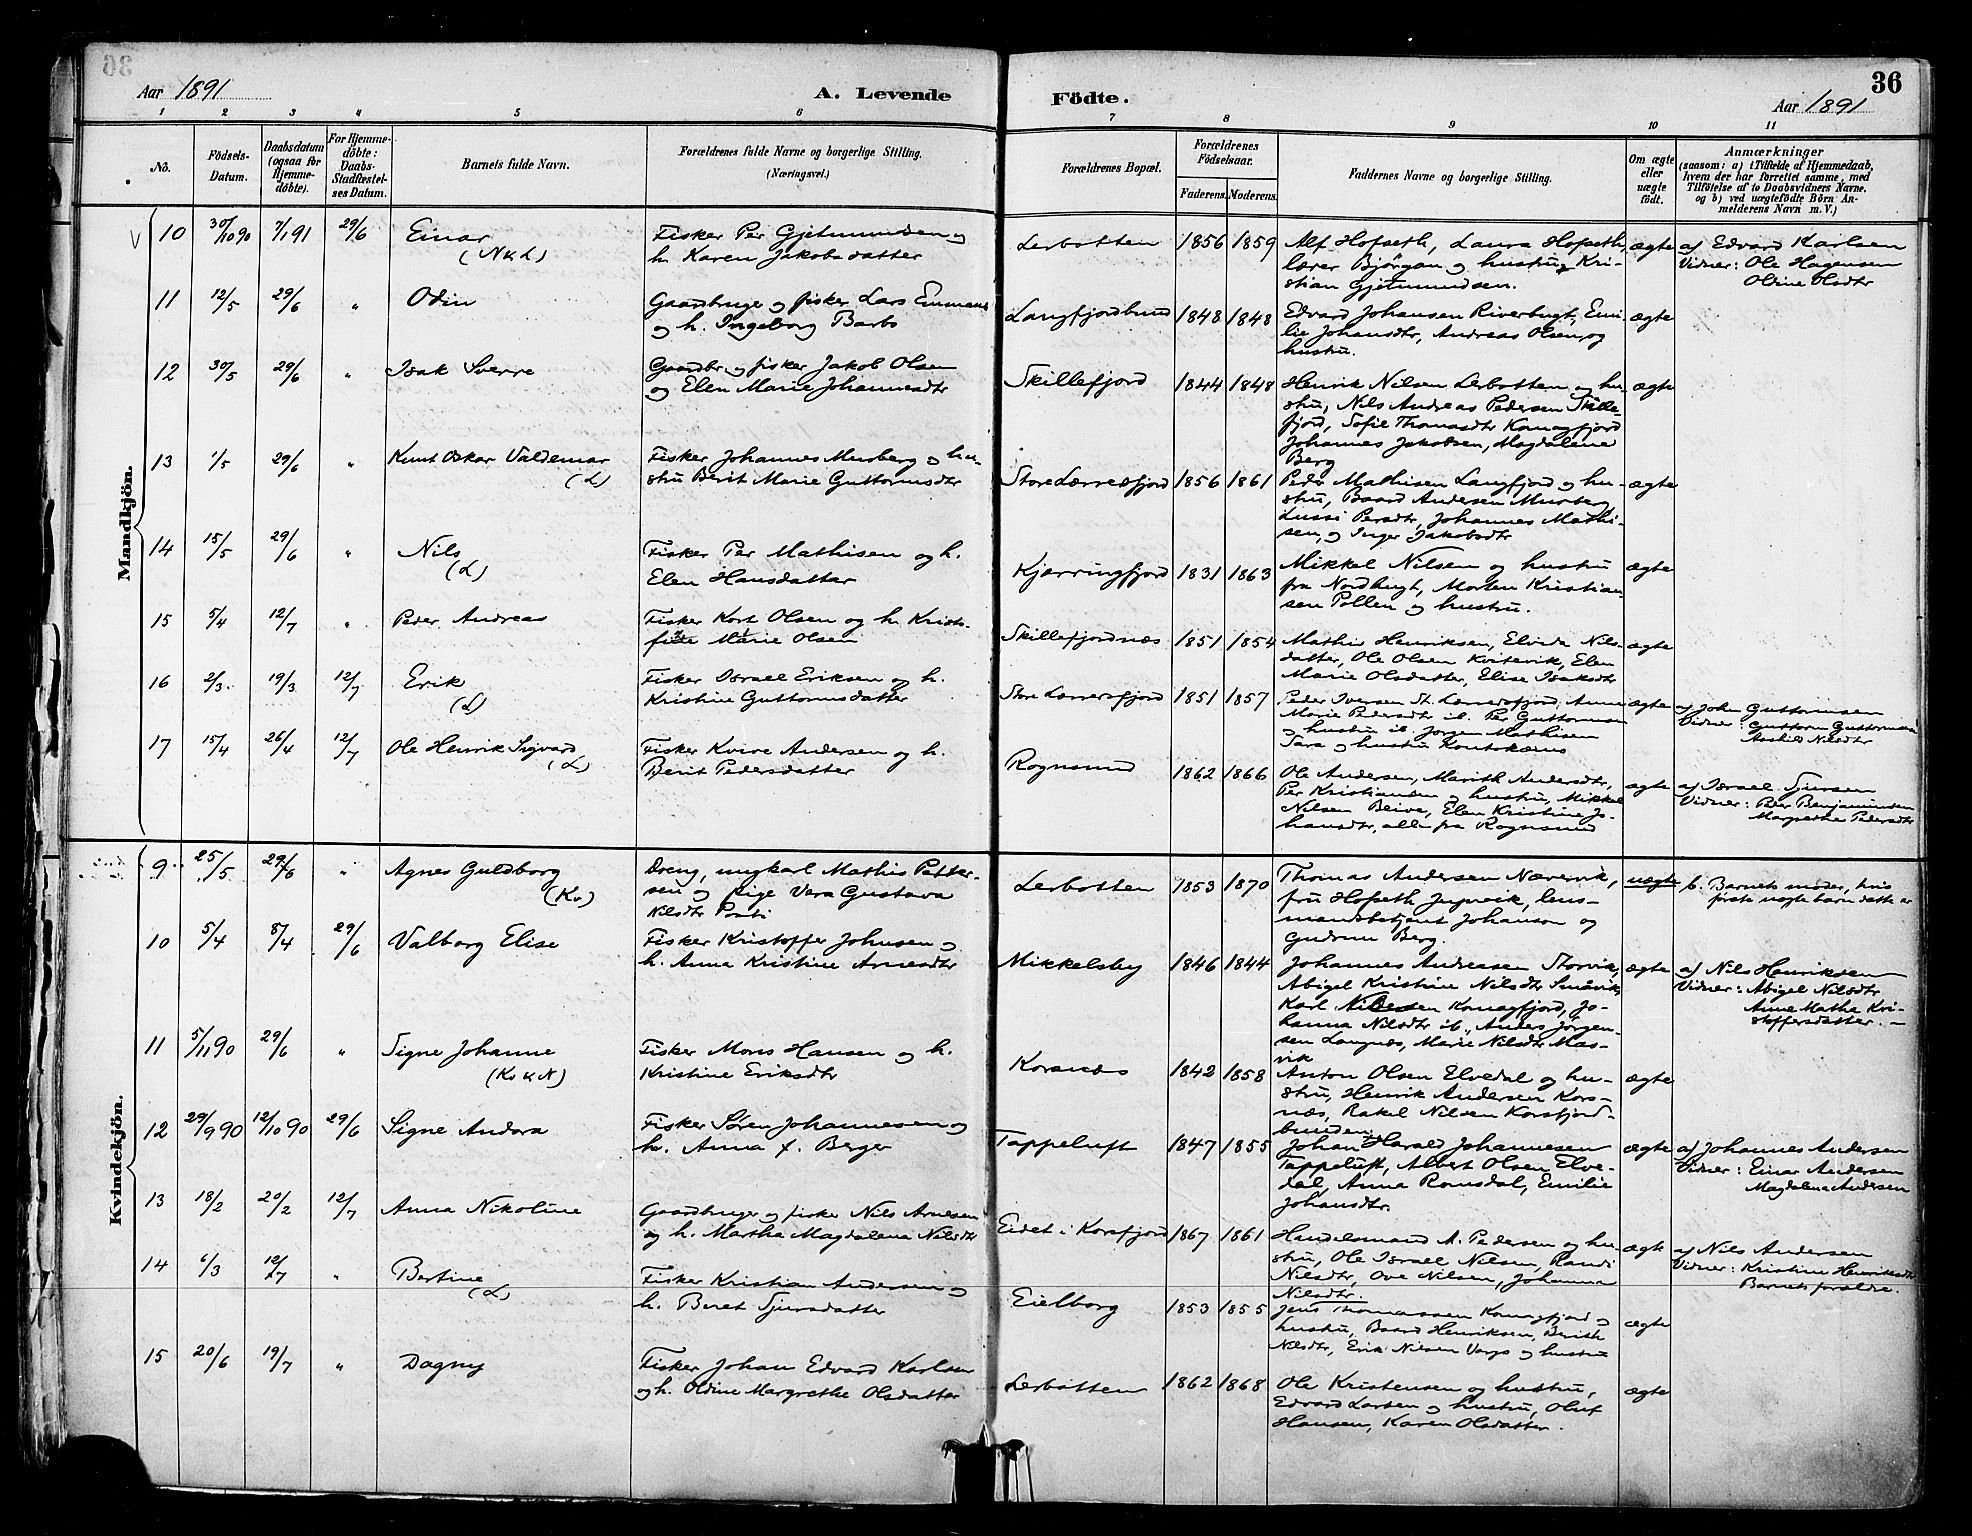 36
Aar 1891
A. Levende Födte.
Aar 1891
1 2 3 4 5 6 7 8 9 10 11
No.
Födsels-Datum.
Daabsdatum (ogsaa for Hjemmedöbte).
For Hjemmedöbte: Daabs-Stadfæstelses Datum.
Barnets fulde Navn.
Forældrenes fulde Navne og borgerlige Stilling.
(Næringsvei.)
Forældrenes Bopæl.
Forældrenes Födselsaar.
Faderens. Moderens.
Faddernes Navne og borgerlige Stilling.
Om ægte eller uægte födt.
Anmærkninger
(saasom: a) i Tilfælde af Hjemmedaab,
hvem der har forrettet samme, med
Tilföielse af to Daabsvidners Navne.
og b) ved uægtefödte Börn An-
melderens Navn m. V.)
Mandkjön.
10 30/10 90 7/1 91 29/6 Einar (N & L)
Fisker Per Gjetmundsen og
h. Karen Jakobsdatter
Lerbotten 1856 1859
Alf Hofseth, Laura Hofseth,
lærer Bjørgan og hustru, Kri-
stian Gjetmundsen.
ægte
af Edvard Karlsen
Vidner: Ole Hagensen
Oldine Olsdtr
11 12/5 29/6 " Odin
Gaardbruger og fisker Lars
og h. Ingeborg Barbo
Langfjordbund 1848 1848
Edvard Johansen Riverbugt, Emi-
lie Johansdtr, Andreas Olsen og
hustru.
ægte
12 30/5 29/6 " Isak Sverre
Gaardbr og fisker Jakob Olsen
og Elen Marie Johannesdtr
Skillefjord 1844 1848
Henrik Nilsen Lerbotten og hu-
stru, Nils Andreas Pedersen Skille-
fjord, Sofie Thomasdtr Komagfjord
Johannes Jakobsen, Magdalena
Berg
ægte
13 1/5 29/6 " Knut Oskar Valdemar (L)
Fisker Johannes Murberg og hu-
stru Berit Marie Guttormsdtr
Store Lerresfjord 1856 1861
Peder Mathisen Langfjord og hu-
stru, Baard Andersen Murberg,
Lussi Persdtr, Johannes Mathi-
sen, og Inger Jakobsdtr
ægte
14 15/5 29/6 " Nils (L)
Fisker Per Mathisen og h.
Elen Hansdatter
Kjærringfjord 1831 1863
Mikkel Nilsen og hustru
fra Nordbugt, Morten Kristian-
sen Pollen og hustru.
ægte
15 5/4 12/7 " Peder Andreas
Fisker Kort Olsen og h. Krist-
Marie Olsen
Skillefjordnæs 1851 1854
Mathis Henriksen, Elvida Nils-
datter, Ole Olsen Kvitevik, Elen
Marie Olsdatter, Elise Isaksdtr
ægte
16 2/3 19/3 12/7 Erik (L)
Fisker Israel Eriksen og h.
Kristine Guttormsdatter
Store Lerresfjord 1851 1857
Peder Iversen St. Lerresfjord, Anne
Marie Pedersdtr ib. Per Guttormsen
og hustru ib. Jørgen Mathisen
Sara og hustru Kautokeino
ægte
af John Guttormsen
Vidner: Guttorm Guttormsen
Aashild Nilsdtr
17 15/4 26/4 12/7 Ole Henrik Sigvard (L)
Fisker Kvive Andersen og h.
Berit Pedersdatter
Rognsund 1862 1866
Ole Andersen, Marith Andersdtr,
Per Kristiansen og hustru, Mikkel
Nilsen Beive, Elen Kristine Jo-
hansdtr, alle fra Rognsund
ægte
af Israel Sjursen
Vidner: Peer Benjaminsen
Margrethe Pedersdtr
Kvindekjön.
9 25/5 29/6 " Agnes Guldborg (Kv)
Dreng, ungkarl Mathis Petter-
sen og pige Vera Gustava
Nilsdtr Ponti
Lerbotten 1853 1870
Thomas Andersen Nævervik,
fru Hofseth Jupvik, lens-
mandsbetjent Johanson og
Gudrun Berg.
uægte
b. Barnets moder, hvis
første uægte barn dette er
10 5/4 8/4 29/6 Valborg Elise
Fisker Kristoffer Johnsen og
h. Anna Kristine Arnesdtr
Mikkelsby 1846 1844
Johannes Andreasen Storvik,
Abigel Kristine Nilsdtr Smaavik,
Karl Nilsen Komagfjord, Jo-
hanna Nilsdtr ib., Anders Jørgen-
sen Langnæs, Marie Nilsdtr Mas-
vik
ægte
af Nils Henriksen
Vidner: Abigel Nilsdtr
Anne Martha Kri-
stoffersdatter. —
11 5/11 90 29/6 " Signe Johanne (Kv & N)
Fisker Mons Hansen og h.
Kristine Eriksdtr
Korsnæs 1842 1858
Anton Olsen Elvedal og hu-
stru, Henrik Andersen Kors-
næs, Rakel Nilsen Korsfjord-
bunden
ægte
12 29/9 90 12/10 90 29/6 Signe Andora
Fisker Søren Johannesen og
h. Anna f. Berger
Tappeluft 1847 1855
Johan Harald Johannesen
Tappeluft, Albert Olsen Elve-
dal, Anna Romsdal, Emilie
Johansdtr.
ægte
af Johannes Andersen
Vidner: Einar Andersen
Magdalena Andersen
13 18/2 20/2 12/7 Anna Nikoline
Gaardbruger og fisker Nils Arnesen
og h. Martha Magdalena Nilsdtr
Eidet i Korsfjord 1867 1861
Handelsmand A. Pedersen og hu-
stru, Ole Israel Nilsen, Randi
Nilsdtr, Ove Nilsen, Johanna
Nilsdtr.
ægte
af Nils Andersen
Vidner: Kristine Henriksdtr
Barnets forældre.
14 6/3 12/7 " Bertine (L)
Fisker Kristian Andersen og
h. Beret Sjursdatter
Eielborg 1853 1855
Jens Thomassen Komagfjord og
hustru, Baard Henriksen, Berith
Nilsdtr, Erik Nilsen Vargo og hustru
ægte
15 20/6 19/7 " Dagny
Fisker Johan Edvard Karlsen
og h. Oldine Margrethe Olsdatter
Lerbotten 1862 1868
Ole Kristensen og hustru,
Edvard Larsen og hustru, Oluf
Hansen, Karen Olsdatter.
ægte